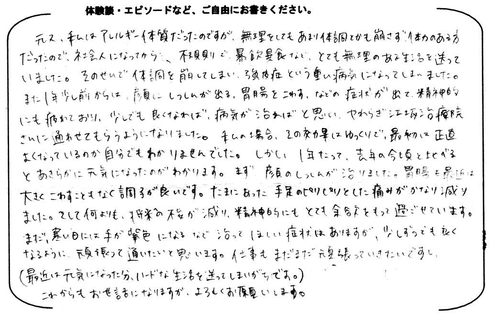 体験談・エピソードなど、ご自由にお書きください。
元々、私はアレルギー体質だったのですが、無理をしてもあまり体調とかも崩さず体力のある方
だったので、社会人になってから、不規則で暴飲暴食など、とても無理のある生活を送って
いました。そのせいで体調を崩してしまい、強皮症という重い病気になってしまいました。
また1年少し前からは、顔にしっしんが出る、胃腸をこわす、などの症状が出て、精神的
にも疲れており、少しでも良くなれば、病気が治ればと思い、やわらぎ治療院
さんに通わせてもらうようになりました。私の場合、その効果はゆっくりで、最初は正直
よくなっているのか自分でもわかりませんでした。しかし1年たって、去年の今頃と比べる
とあきらかに元気になったのがわかります。まず顔のしっしんが治りました。胃腸も最近は
大きくこわすこともなく調子が良いです。たまにあった手足のピリピリとした痛みがかなり減り
ました。そして何よりも、将来の不安が減り、精神的にもとても余裕をもって過ごせています。
まだ、寒い日には手が紫色になるなど治ってほしい症状はありますが、少しずつでも良く
なるように、頑張って通いたいと思います。仕事もまだまだ頑張っていきたいですし。
(最近は元気になった分、ハードな生活を送ってしまいがちです。)
これからもお世話になりますが、よろしくお願いします。